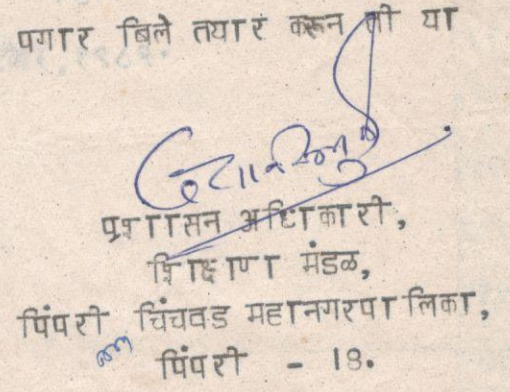 पगार बिले तयार करून ती या
प्रशासन अधिकारी,
शिक्षण मंडळ,
पिंपरी चिंचवड महानगरपालिका,
पिंपरी - 18.